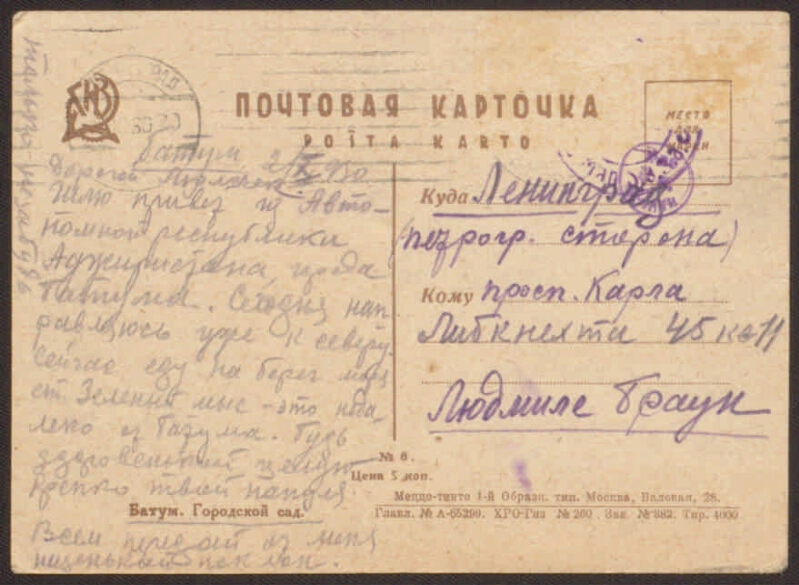 ПОЧТОВАЯ КАРТОЧКА
POŜTA KARTO
МЕСТО
ДЛЯ
МАРКИ
только не забудь
Батум 2/X 30
Дорогой
Шлю привет из Авто-
номной республики
Аджаристана города
Батума. Сегодня нап
равляюсь уже к северу.
Сейчас еду на берег моря
ст. Зеленый мыс - это неда
леко от Батума. Будь
здоровенький целую
крепко твой папуля
Всем передай от меня
низенький поклон.
Куда Ленинград
(петрогр. сторона)
Кому просп. Карла
Либкнехта 45 кв 11
Людмиле Браун
№ 6.
Цена 5 коп.
Батум. Городской сад.
Меццо-тинто 1-й Образц. тип. Москва, Валовая, 28.
Главл. № А-65299. ХРО-Гиз № 260. Зак. № 882. Тир. 4000